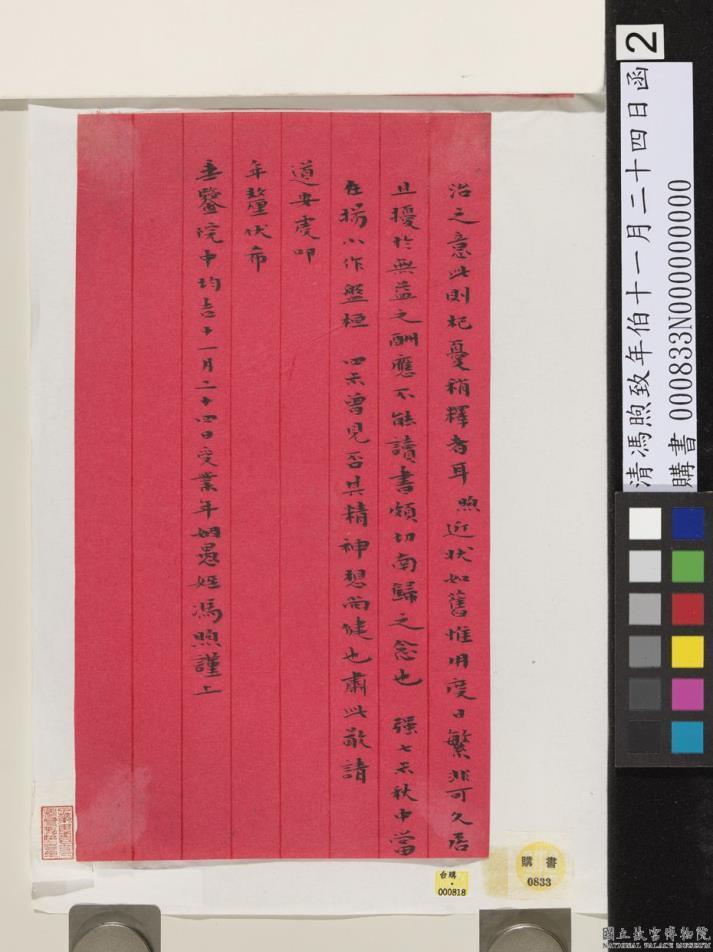 治之意此則杞憂稍釋者耳 煦近狀如舊惟用度日繁非可久居
且擾於無益之酬應不能讀書頗切南歸之念也 强七未秋中當
在揚小作盤桓 四未曾見否其精神想尚健也肅此敬請
道安虔叩
年釐伏希
垂鑒院中均吉十一月二十四日受業年姻愚姪馮煦謹上
2
清馮煦致年伯十一月二十四日函
購書 000833N000000000
購書
0833
台購
000818
國立故宮博物院
NATIONAL PALACE MUSEUM